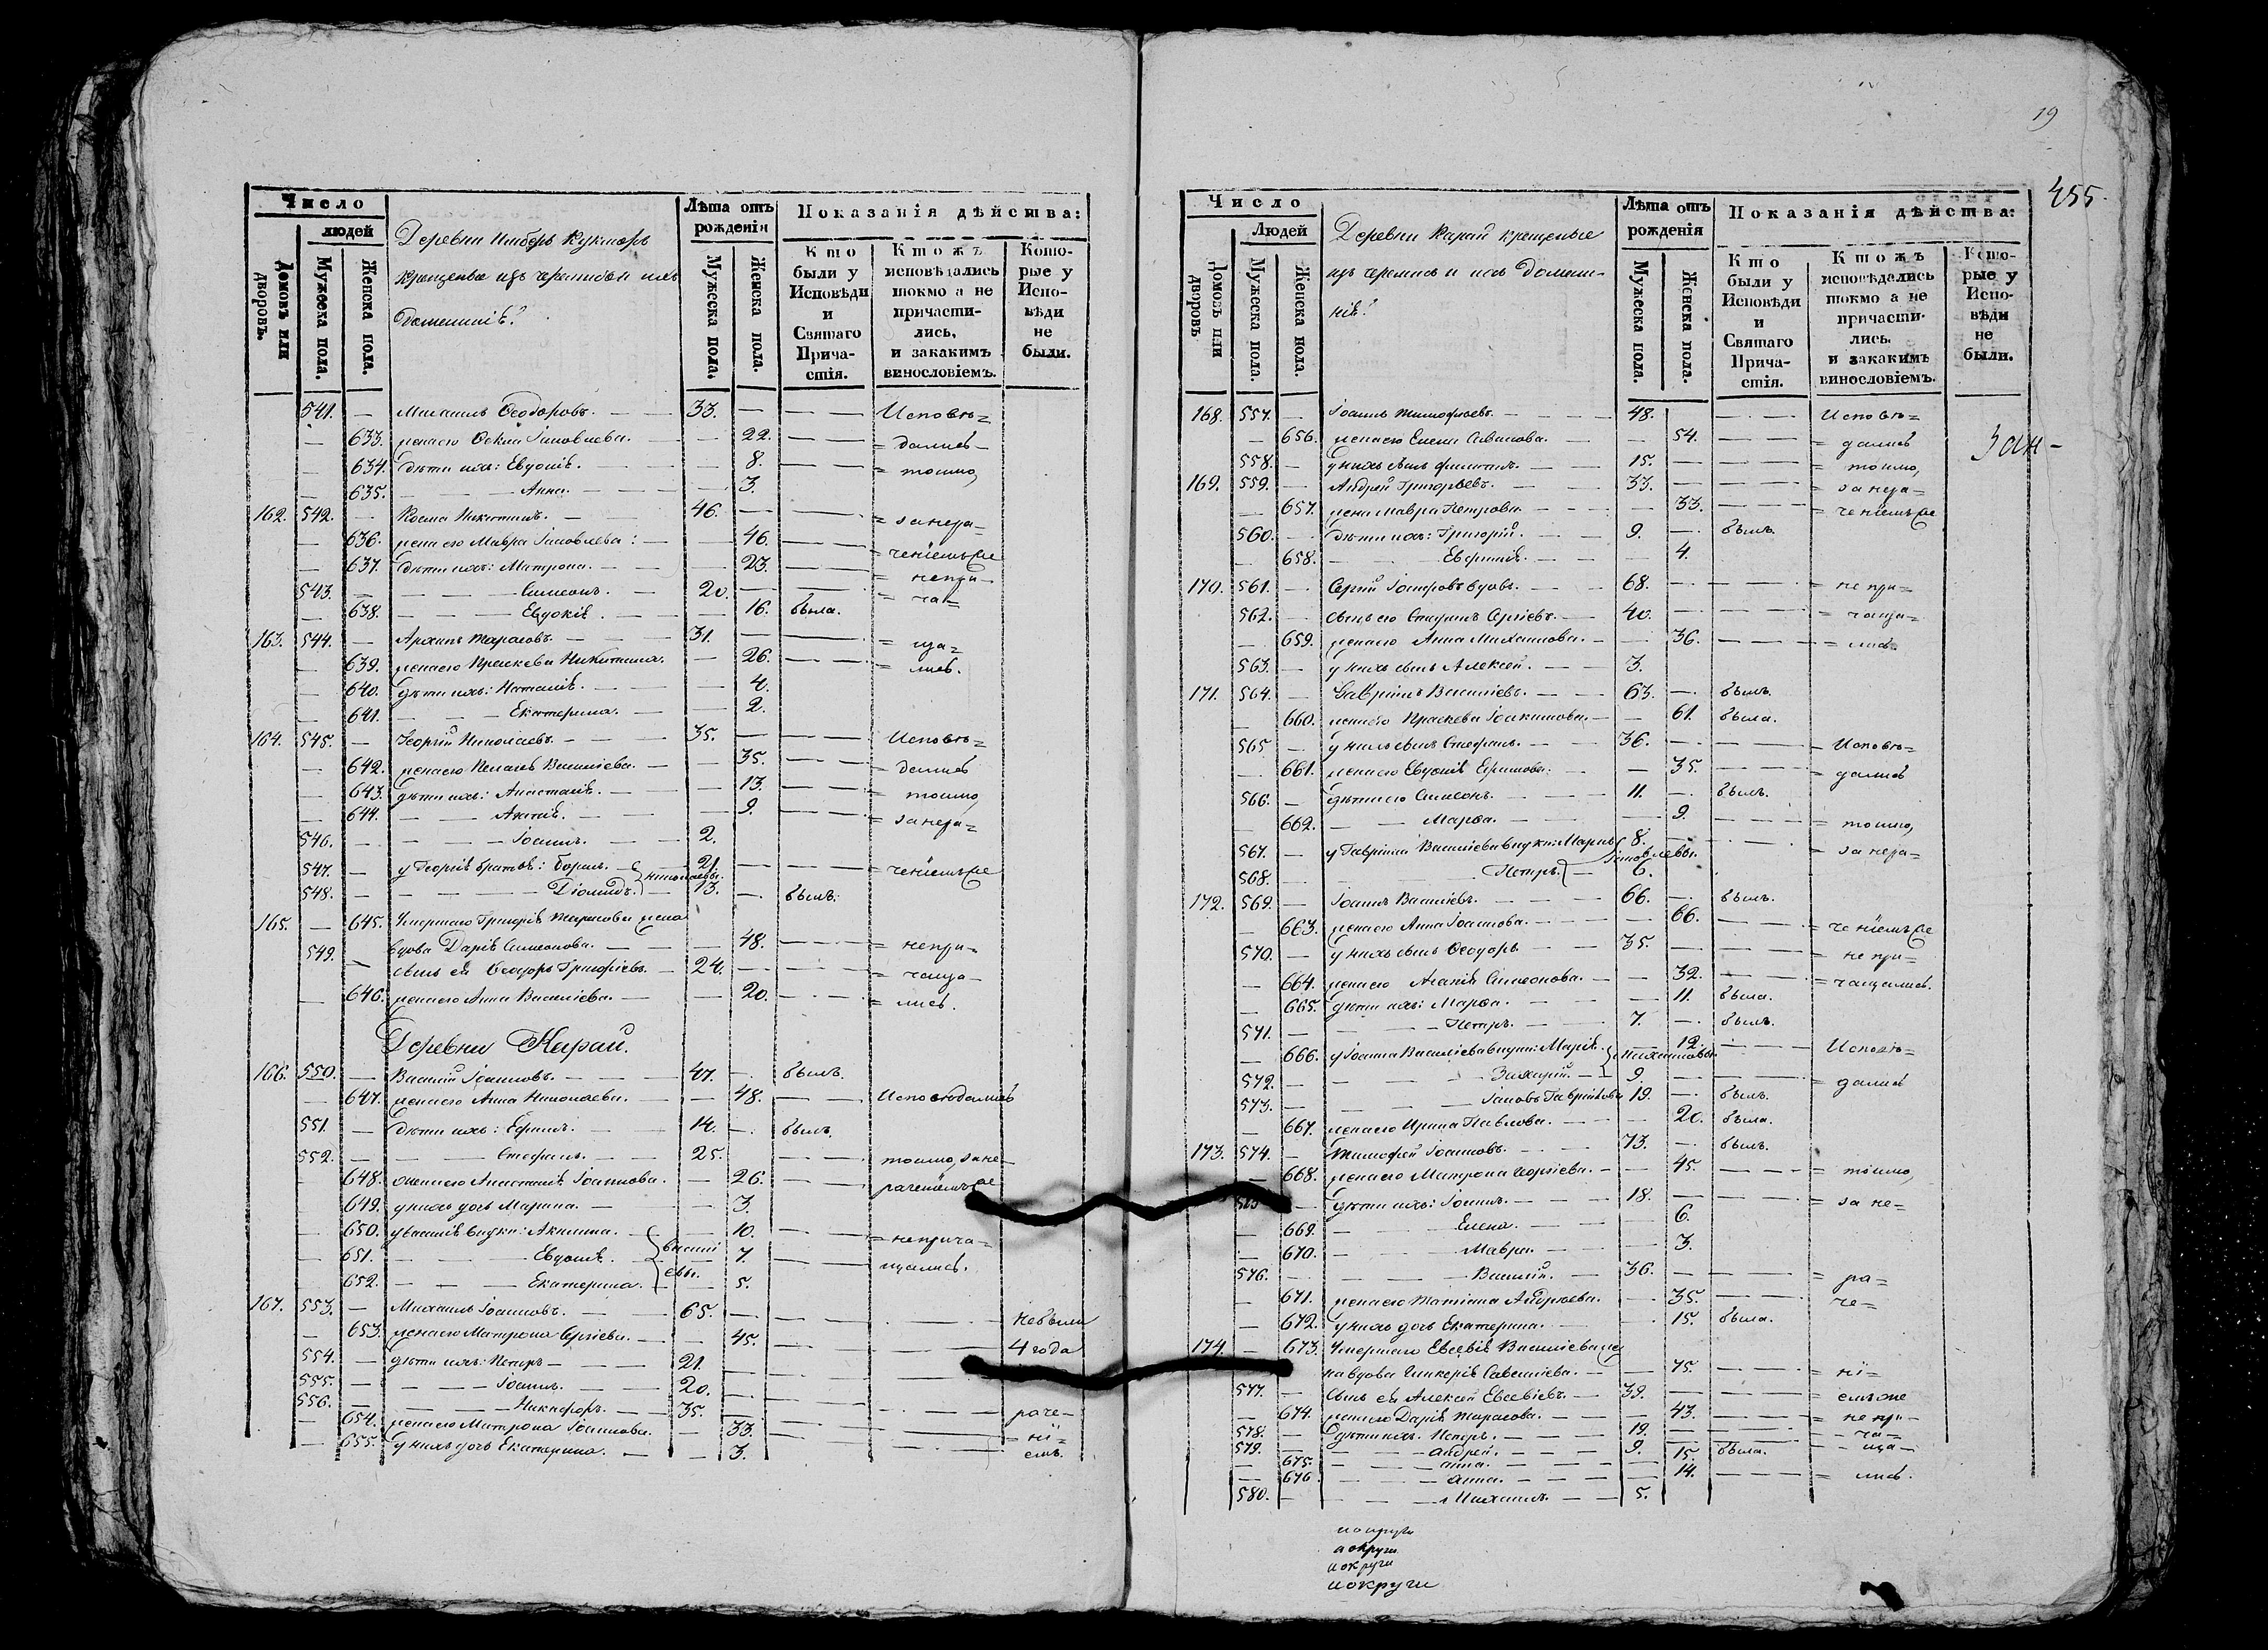 Число
людей
Домовъ или дворовъ.
Мужеска пола.
Женска пола.
Деревни Имберь Кукморъ
крещеные изъ черемисъ и ихъ
домашніѣ.
Лѣта отъ рожденія
Мужеска пола.
Женска пола.
Показанія дѣйства:
Кто были у Исповѣди и Святаго Прича-стія.
Ктожъ исповѣдались токмо а не причасти-лись, и закакимъ винословіемъ.
Кото-рые у Испо-вѣди не были.
541. — Михаилъ Ѳеодоровъ. — — 33. — — Исповѣ=
— 633. жена его Ѳекла Іаковлева. — — 22. — — = дались
— 634. дѣти ихъ: Евдокіѣ. — — 8. — — = токмо,
— 635. — — Анна. — — 3.
162. 542. — Косма Никитинъ. — 46. — — = занера=
— 636. жена его Мавра Іаковлева: — — 46. — — = ченіемъ же
— 637. дѣти ихъ: Матрона. — — 23. — — = непри=
543. — — — Симеонъ. — 20. — — = ча=
— 638. — — Евдокіѣ. — — 16. была.
163. 544. — Архипъ Тарасовъ. — — 31. — — = ща=
— 639. жена его Праскева Никитина. — 26. — — = лись.
— 640. дѣти ихъ: Наталіѣ. — — 4.
— 641. — — Екатерина. — — 2.
164. 545. — Георгій Николаевъ. — — 35. — — Исповѣ=
— 642. жена его Пелагіѣ Василіева. — — 35. — — = дались
— 643. дѣти ихъ: Анастасіѣ. — — 13. — — = токмо,
— 644. — — Агапіѣ. — — 9. — — = занера=
546. — — — Іоаннъ. — — 2.
547. — у Георгіѣ братьѣ: Борисъ. — Николаевы. 21. — — = ченіемъ же
548. — — — Діомидъ. — 13. — былъ.
165. — 645. Умершаго Григоріѣ Тарасова жена
вдова Даріѣ Симеонова. — — 48. — — = непри=
549. — сынъ ея Ѳеодоръ Григоріевъ. — 24. — — = чаща=
— 646. жена его Анна Василіева. — — 20. — — = лись.
Деревни Карай.
166. 550. — Василій Іоанновъ. — — 47. — былъ.
— 647. жена его Анна Николаева. — — 48. — — Исповѣдались
551. — дѣти ихъ: Ефимъ. — — 14. — былъ.
552. — — — Стефанъ. — — 25. — — токмо, зане=
— 648. жена его Анастасіѣ Іоаннова. — 26. — — раченіемъ же
— 649. у нихъ дочь Марина. — — 3.
— 650. у Василіѣ внуки: Акилина. — 10. — — = неприча=
— 651. — — Евдокіѣ. — Василіевы. 7. — — щались.
— 652. — — Екатерина. — 5.
167. 553. — Михаилъ Іоанновъ. — — 65. — — Небыли
— 653. жена его Матрона Сергіева. — — 45. — — 4 года
554. — дѣти ихъ: Петръ — — 21.
555. — — — Іоаннъ. — — 20.
556. — — — Никифоръ. — 35. — — раче=
— 654. жена его Матрона Іоаннова. — 33. — — = ні=
— 655. у нихъ дочь Екатерина. — — 3. — емъ.
19
455.
Зан-
Число
Людей
Домовъ или дворовъ
Мужеска пола.
Женска пола.
Деревни Карай крещеные
изъ черемисъ и ихъ домаш-
ніѣ.
Лѣта отъ рожденія
Мужеска пола.
Женска пола.
Показанія дѣйства:
Кто были у Исповѣди и Святаго Прича-стія.
Ктожъ исповѣдались токмо а не причасти-лись. и закакимъ винословіемъ.
Кото-рые у Испо-вѣди не были.
168. 557. — Іоаннъ Тимофеевъ. — — 48. — — Исповѣ=
— 656. жена его Елена Савинова. — — 54. — — = дались
558. — у нихъ сынъ Филиппъ. — — 15. — — = токмо,
169. 559. — Андрей Григорьевъ. — — 33. — — = занера=
— 657. жена Мавра Петрова. — — 33. — — = ченіемъ же
560. — дѣти ихъ: Григорій. — — 9. — былъ.
— 658. — — Евфиміѣ. — — 4.
170. 561. — Сергій Іосифовъ вдовъ. — — 68. — — = непри=
562. — сынъ его Стефанъ Сергіевъ. — 40. — — = чаща=
— 659. жена его Анна Михаилова. — — 36. — — = лись
563. — у нихъ сынъ Алексей. — — 3.
171. 564. — Гавріилъ Василіевъ. — — 63. — былъ.
— 660. жена его Праскева Іоакимова. — — 61. была.
565 — у нихъ сынъ Стефанъ. — — 36. — — Исповѣ=
— 661. жена его Евдокіѣ Ефимова: — — 35. — — = дались
566. — дѣти его Симеонъ. — — 11. — былъ.
— 662. — — Марѳа. — — 9. — — = токмо,
567. — у Гавріила Василіева внуки: Маркъ Іаковлевы. 8. — — = занера=
568. — — — Петръ. — 6.
172. 569. — Іоаннъ Василіевъ. — — 66. — былъ.
— 663. жена его Анна Іоаннова. — — 66. — — = ченіемъ же
570. — у нихъ сынъ Ѳеодоръ. — — 35. — — = непри=
— 664. жена его Агапіѣ Симеонова. — — 32. — — = чащались.
— 665. дѣти ихъ: Марѳа. — — 11. была.
571. — — — Петръ. — — 7. — былъ.
— 666. у Іоанна Василіева внуки: Маріѣ. Михаиловы. — 12. — — Исповѣ=
572. — — — Захарій. — 9. — — = дались
573. — — — Іаковъ Гавріиловъ 19. — былъ.
— 667. жена его Ирина Павлова. — — 20. была.
173. 574. — Тимофей Іоанновъ. — — 73. — былъ.
— 668. жена его Матрона Георгіева. — — 45. — — = токмо,
575 — дѣти ихъ: Іоаннъ. — — 18. — — = зане=
— 669. — — Елена. — — 6.
— 670. — — Мавра. — — 3.
576. — — — Василій. — 36. — — = ра=
— 671. жена его Татіана Андреева. — 35. — — че=
— 672. у нихъ дочь Екатерина. — — 15. была.
174. — 673. Умершаго Евсевіѣ Василіева же
на вдова Гликеріѣ Савеліева. — — 75. — — = ні=
577. — Сынъ ея Алексей Евсевіевъ. — 39. — — емъ же
— 674. жена его Даріѣ Тарасова. — — 43. — — = непри=
578. — Дѣти ихъ. Петръ. — — 19. — — = ча=
579. — — — Андрей. — — 9. — — ща=
— 675. — — Анна. — — 15. была.
— 676. — — Анна. — — 14. — — = лись.
580. — — — Михаилъ. — — 5.
иокруги
иокруги
иокруги
иокруги